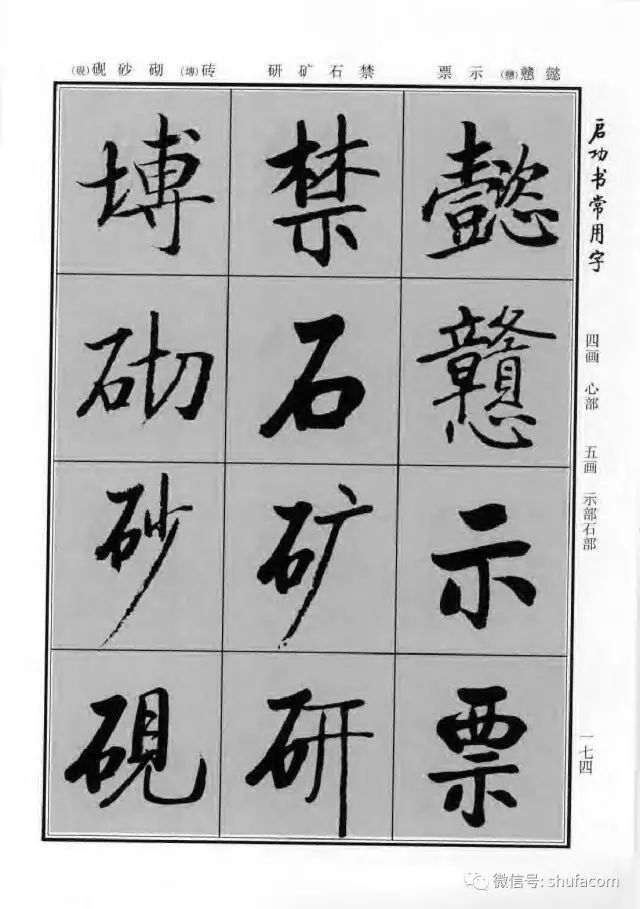 懿戆(戇)示票 禁石矿研 砖(塼)砌砂砚(硯)
启功书常用字
四画 心部 五画 示部石部
一七四
懿戇示票
禁石矿研
塼砌砂硯
微信号: shufacom